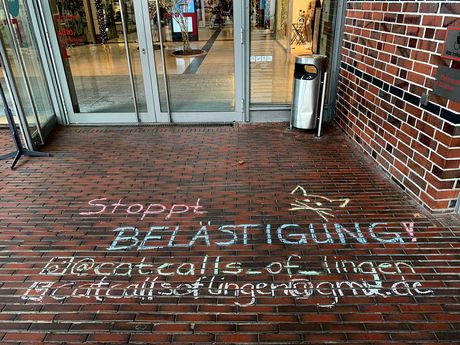 Stoppt
BELÄSTIGUNG!
@catcalls_of_lingen
catcallsoflingen@gmx.de